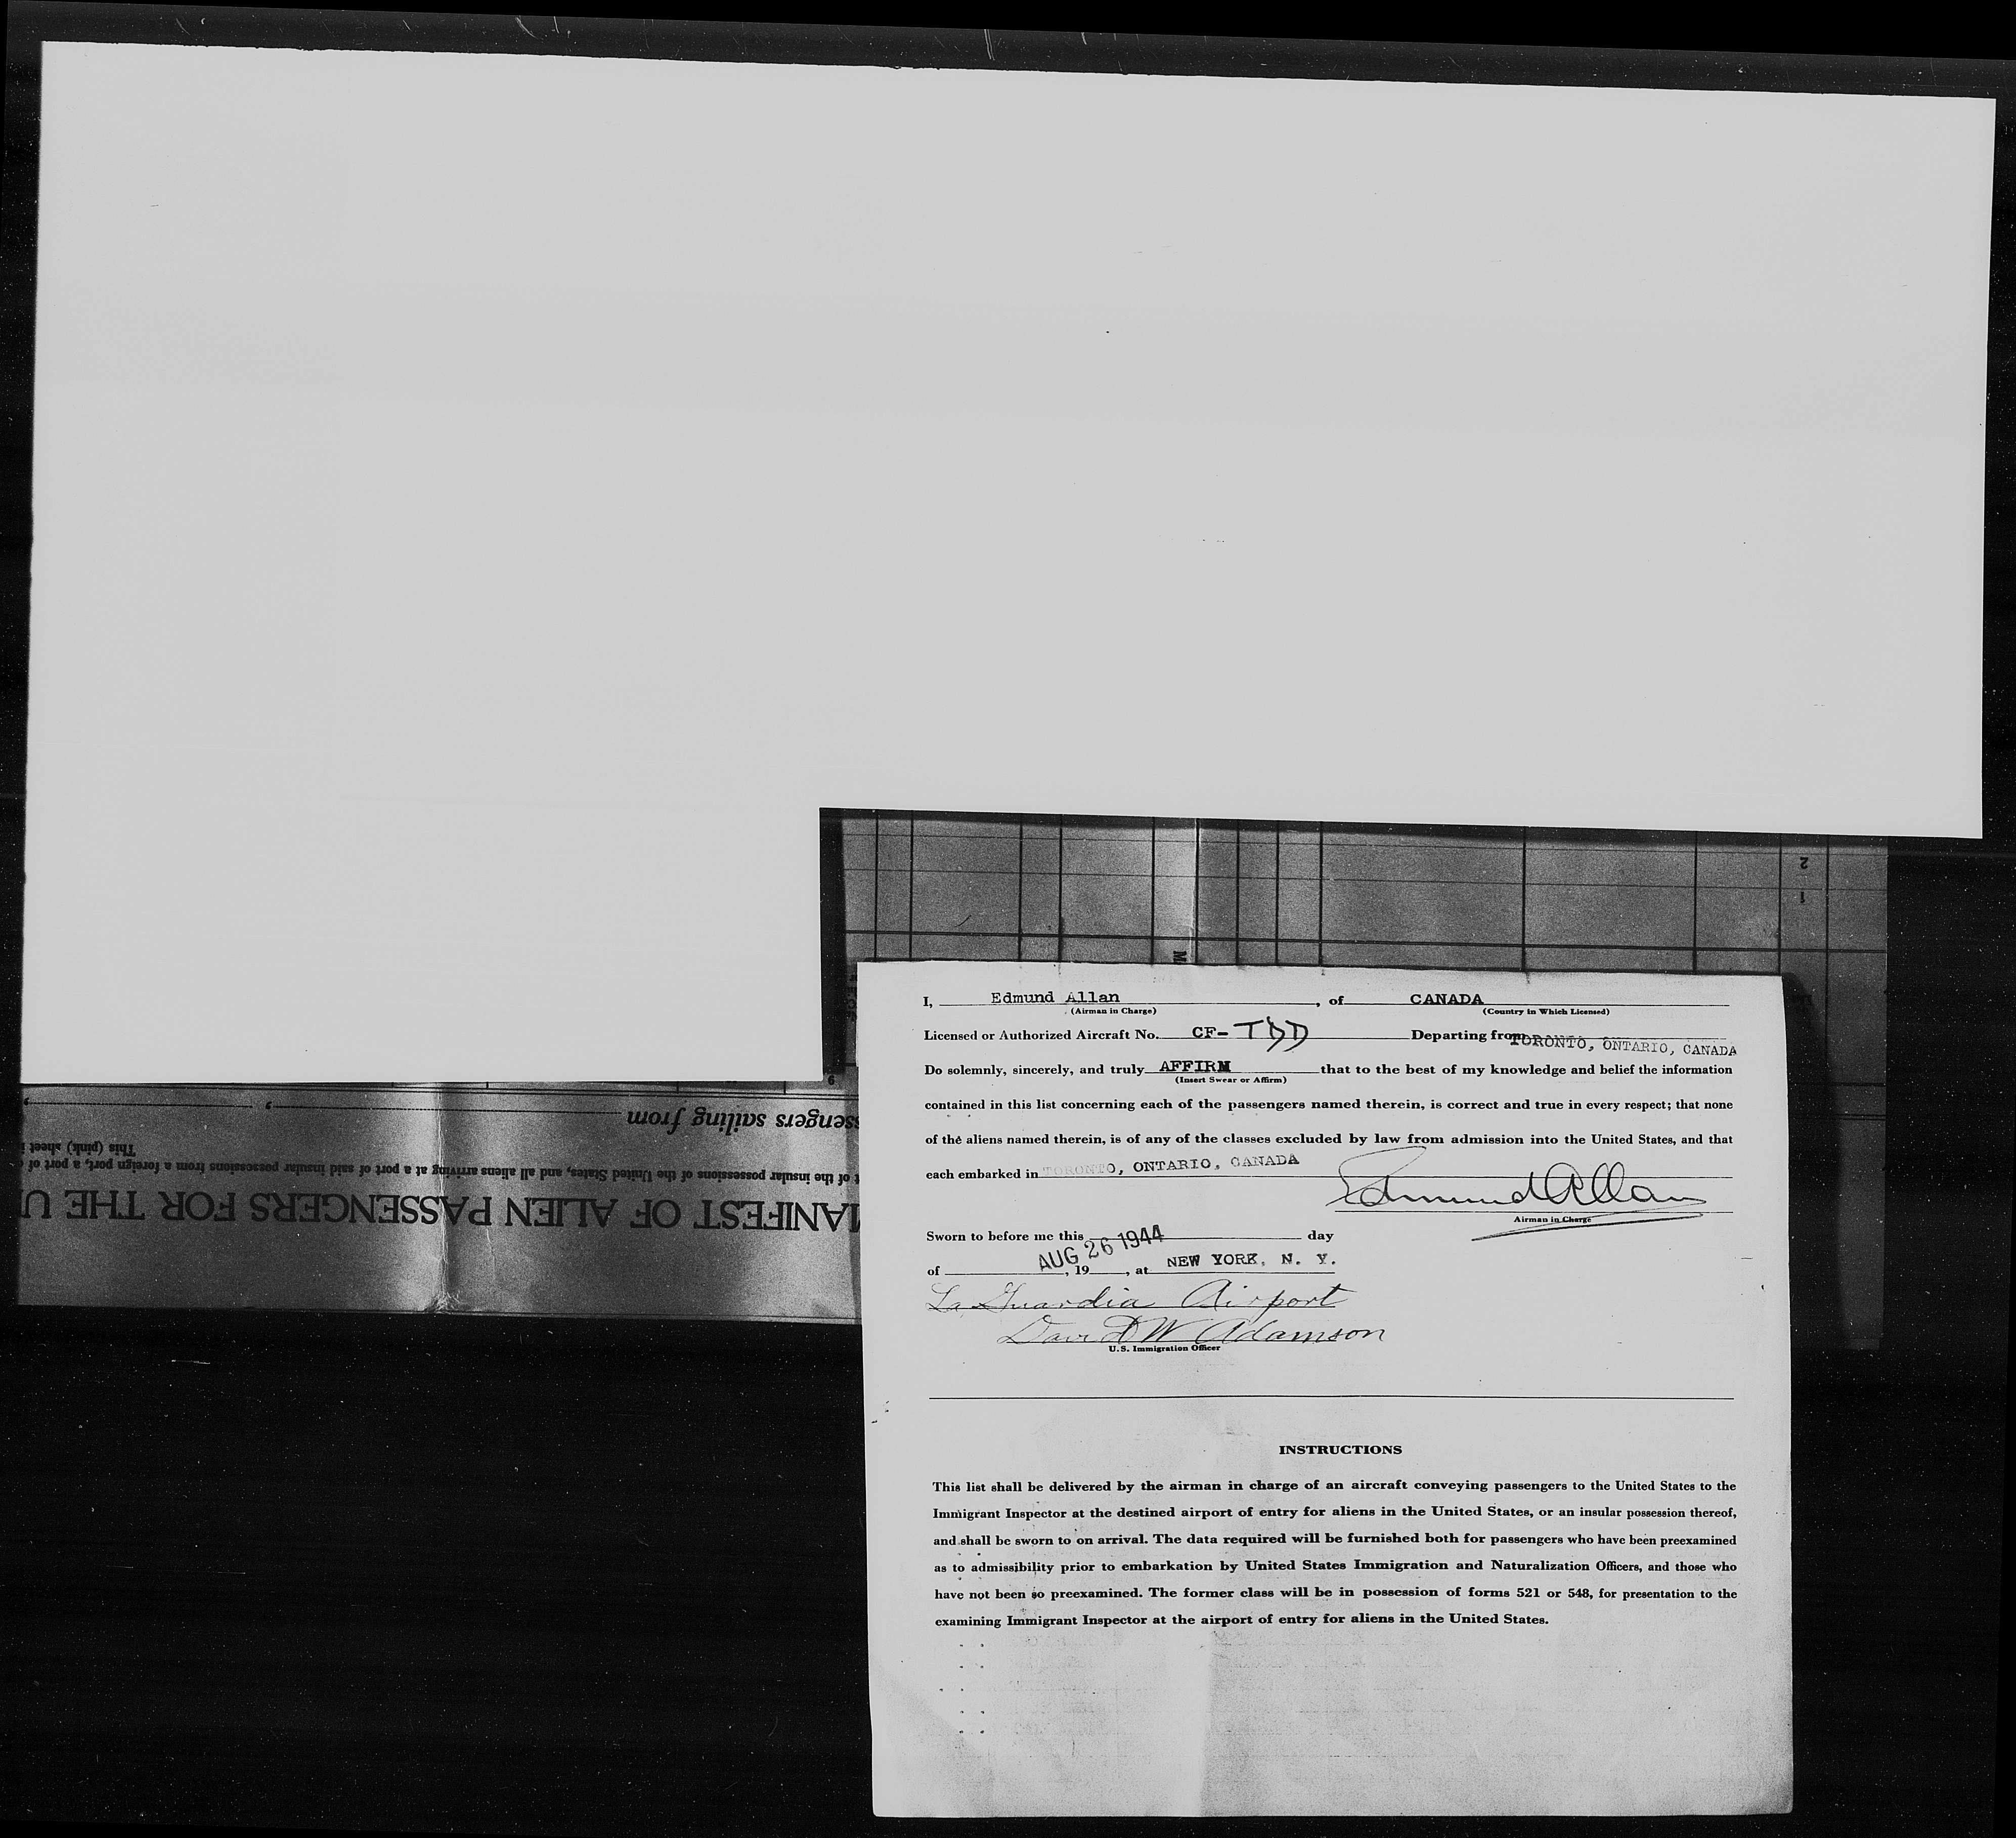 2
1
M
I, Edmund Allan, of CANADA
(Airman in Charge) (Country in Which Licensed)
Licensed or Authorized Aircraft No. CF-TDD Departing from TORONTO, ONTARIO, CANADA
Do solemnly, sincerely, and truly AFFIRM that to the best of my knowledge and belief the information
(Insert Swear or Affirm)
contained in this list concerning each of the passengers named therein, is correct and true in every respect; that none
of the aliens named therein, is of any of the classes excluded by law from admission into the United States, and that
each embarked in TORONTO, ONTARIO, CANADA
Edmund Allan
Airman in Charge
Sworn to before me this day
AUG 26 1944
of , 19 , at NEW YORK, N. Y.
La Guardia Airport
David W Adamson
U.S. Immigration Officer
INSTRUCTIONS
This list shall be delivered by the airman in charge of an aircraft conveying passengers to the United States to the
Immigrant Inspector at the destined airport of entry for aliens in the United States, or an insular possession thereof,
and shall be sworn to on arrival. The data required will be furnished both for passengers who have been preexamined
as to admissibility prior to embarkation by United States Immigration and Naturalization Officers, and those who
have not been so preexamined. The former class will be in possession of forms 521 or 548, for presentation to the
examining Immigrant Inspector at the airport of entry for aliens in the United States.
ANIFEST OF ALIEN PASSENGERS FOR THE U
t of the insular possessions of the United States, and all aliens arriving at a port of said insular possessions from a foreign port, a port of
This (pink) sheet
ssengers sailing from